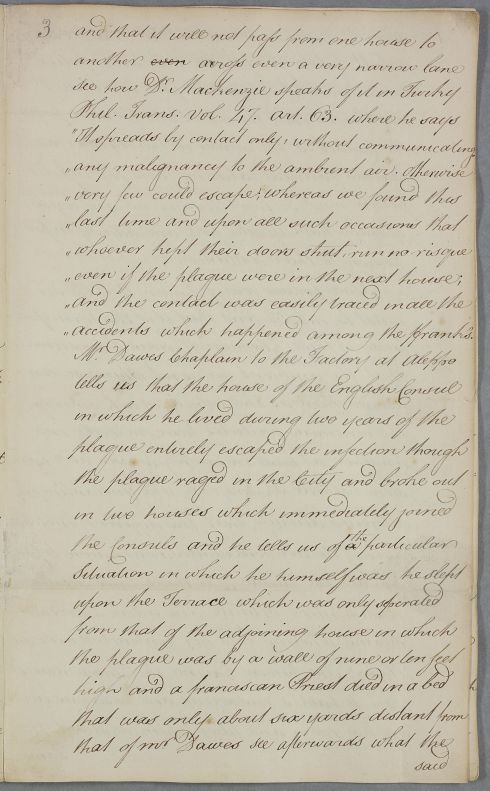 3
and that it will not pass from one house to
another even across even a very narrow lane
see how Dr. Mackenzie speaks of it in Turky
Phil. Trans. vol. 47. art. 63. where he says
"It spreads by contact only, without communicating
"any malignancy to the ambient air. otherwise
"very few could escape; whereas we found this
"last time and upon all such occasions that
"whoever kept their doors shut, run no risque
"even if the plague were in the next house;
"and the contact was easily traced in all the
"accidents which happened among the Franks.
Mr. Dawes Chaplain to the Factory at Aleppo
tells us that the house of the English Consul
in which he lived during two years of the
plague entirely escaped the infection though
the plague raged in the City and broke out
in two houses which immediately joined
the Consuls and he tells us of the particular
Situation in which he himself was he slept
upon the Terrace which was only sperated
from that of the adjoining house in which
the plague was by a wall of nine or ten feet
high and a franciscan Priest died in a bed
that was only about six yards distant from
that of mr Dawes see afterwards what the
said